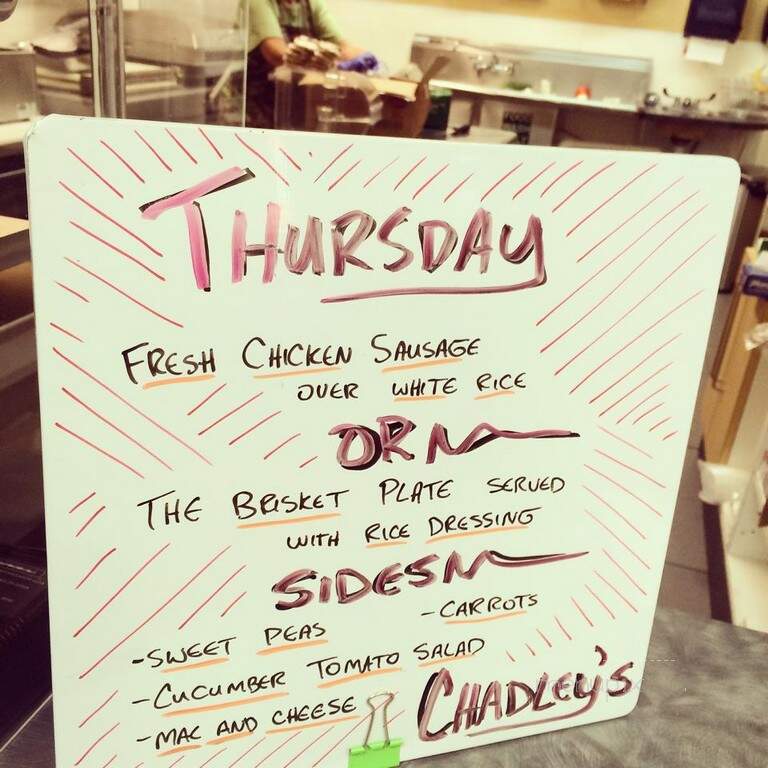 THURSDAY
FRESH CHICKEN SAUSAGE
OVER WHITE RICE
OR
THE BRISKET PLATE SERVED
WITH RICE DRESSING
SIDES
-CARROTS
-SWEET PEAS
-CUCUMBER TOMATO SALAD
-MAC AND CHEESE
CHADLEY'S